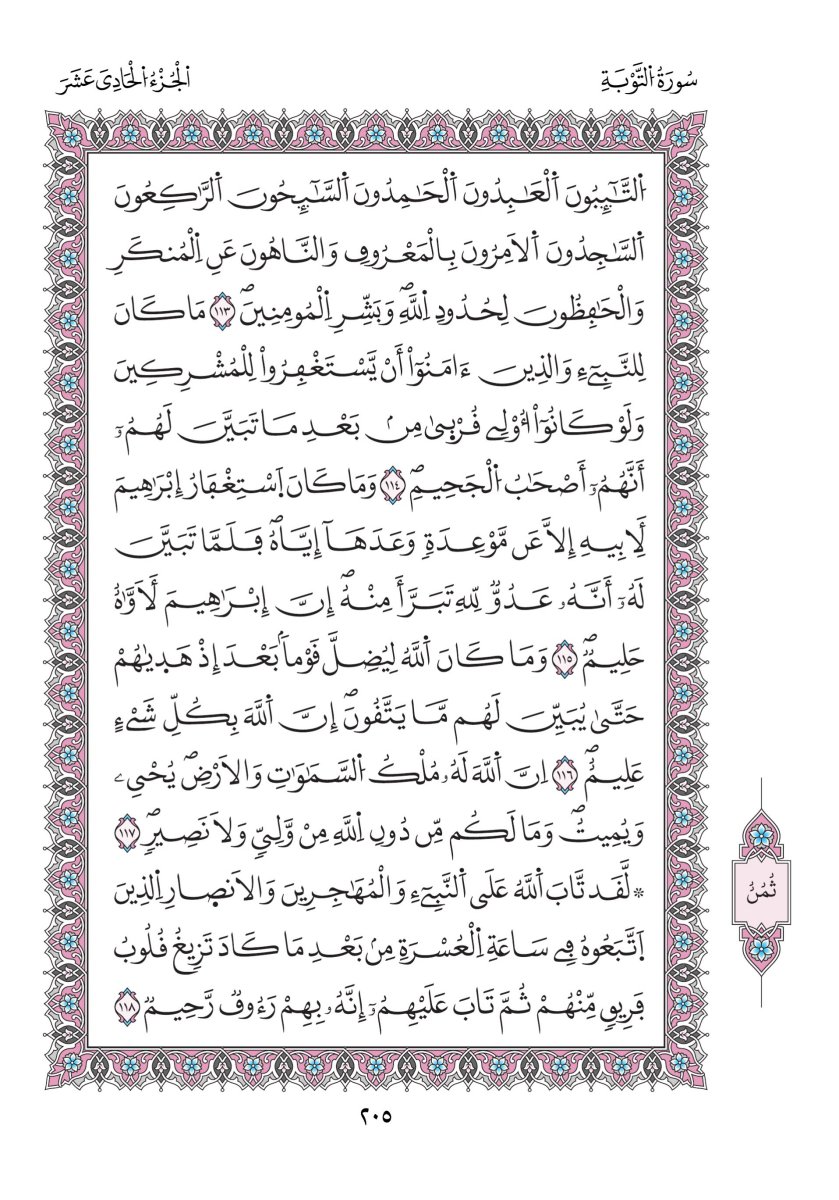 سُورَةُ التَّوْبَةِ
الْجُزْءُ الْحَادِيَ عَشَرَ
اَ۬لتَّٰٓئِبُونَ اَ۬لْعَٰبِدُونَ اَ۬لْحَٰمِدُونَ اَ۬لسَّٰٓئِحُونَ اَ۬لرَّٰكِعُونَ
اَ۬لسَّٰجِدُونَ اَ۬لَامِرُونَ بِالْمَعْرُوفِ وَالنَّاهُونَ عَنِ اِ۬لْمُنكَرِ
وَالْحَٰفِظُونَ لِحُدُودِ اِ۬للَّهِۖ وَبَشِّرِ اِ۬لْمُومِنِينَۖ ١١٣ مَا كَانَ
لِلنَّبِيٓءِ وَالذِينَ ءَامَنُوٓاْ أَنْ يَّسْتَغْفِرُواْ لِلْمُشْرِكِينَ
وَلَوْ كَانُوٓاْ أُوْلِے قُرْب۪يٰ مِنۢ بَعْدِ مَا تَبَيَّنَ لَهُمُۥٓ
أَنَّهُمُۥٓ أَصْحَٰبُ اُ۬لْجَحِيمِۖ ١١٤ وَمَا كَانَ اَ۪سْتِغْفَارُ إِبْرَٰهِيمَ
لِأَبِيهِ إِلَّا عَن مَّوْعِدَةٖ وَعَدَهَآ إِيَّاهُۖ فَلَمَّا تَبَيَّنَ
لَهُۥٓ أَنَّهُۥ عَدُوّٞ لِّلهِ تَبَرَّأَ مِنْهُۖ إِنَّ إِبْرَٰهِيمَ لَأَوَّٰهٌ
حَلِيمٞۖ ١١٥ وَمَا كَانَ اَ۬للَّهُ لِيُضِلَّ قَوْماَۢ بَعْدَ إِذْ هَد۪يٰهُمْ
حَتَّىٰ يُبَيِّنَ لَهُم مَّا يَتَّقُونَۖ إِنَّ اَ۬للَّهَ بِكُلِّ شَےْءٍ
عَلِيمٌۖ ١١٦ اِنَّ اَ۬للَّهَ لَهُۥ مُلْكُ اُ۬لسَّمَٰوَٰتِ وَالَارْضِۖ يُحْيِۦ
وَيُمِيتُۖ وَمَا لَكُم مِّن دُونِ اِ۬للَّهِ مِنْ وَّلِيّٖ وَلَا نَصِيرٖۖ ١١٧
* لَّقَد تَّابَ اَ۬للَّهُ عَلَى اَ۬لنَّبِيٓءِ وَالْمُهَٰجِرِينَ وَالَانصِارِ اِ۬لذِينَ
اَ۪تَّبَعُوهُ فِے سَاعَةِ اِ۬لْعُسْرَةِ مِنۢ بَعْدِ مَا كَادَ تَزِيغُ قُلُوبُ
فَرِيقٖ مِّنْهُمْ ثُمَّ تَابَ عَلَيْهِمُۥٓ إِنَّهُۥ بِهِمْ رَءُوفٞ رَّحِيمٞ ١١٨
ثُمُنُ
٢٠٥